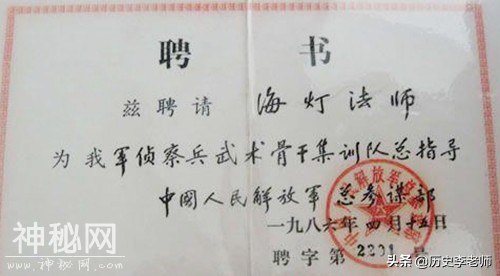 聘书
兹聘请 海灯法师
为我军侦察兵武术骨干集训队总指导
中国人民解放军总参谋部
一九八六年四月十五日
聘字第2291号
神秘网
www.shenmiw.com
头条 @历史李老师